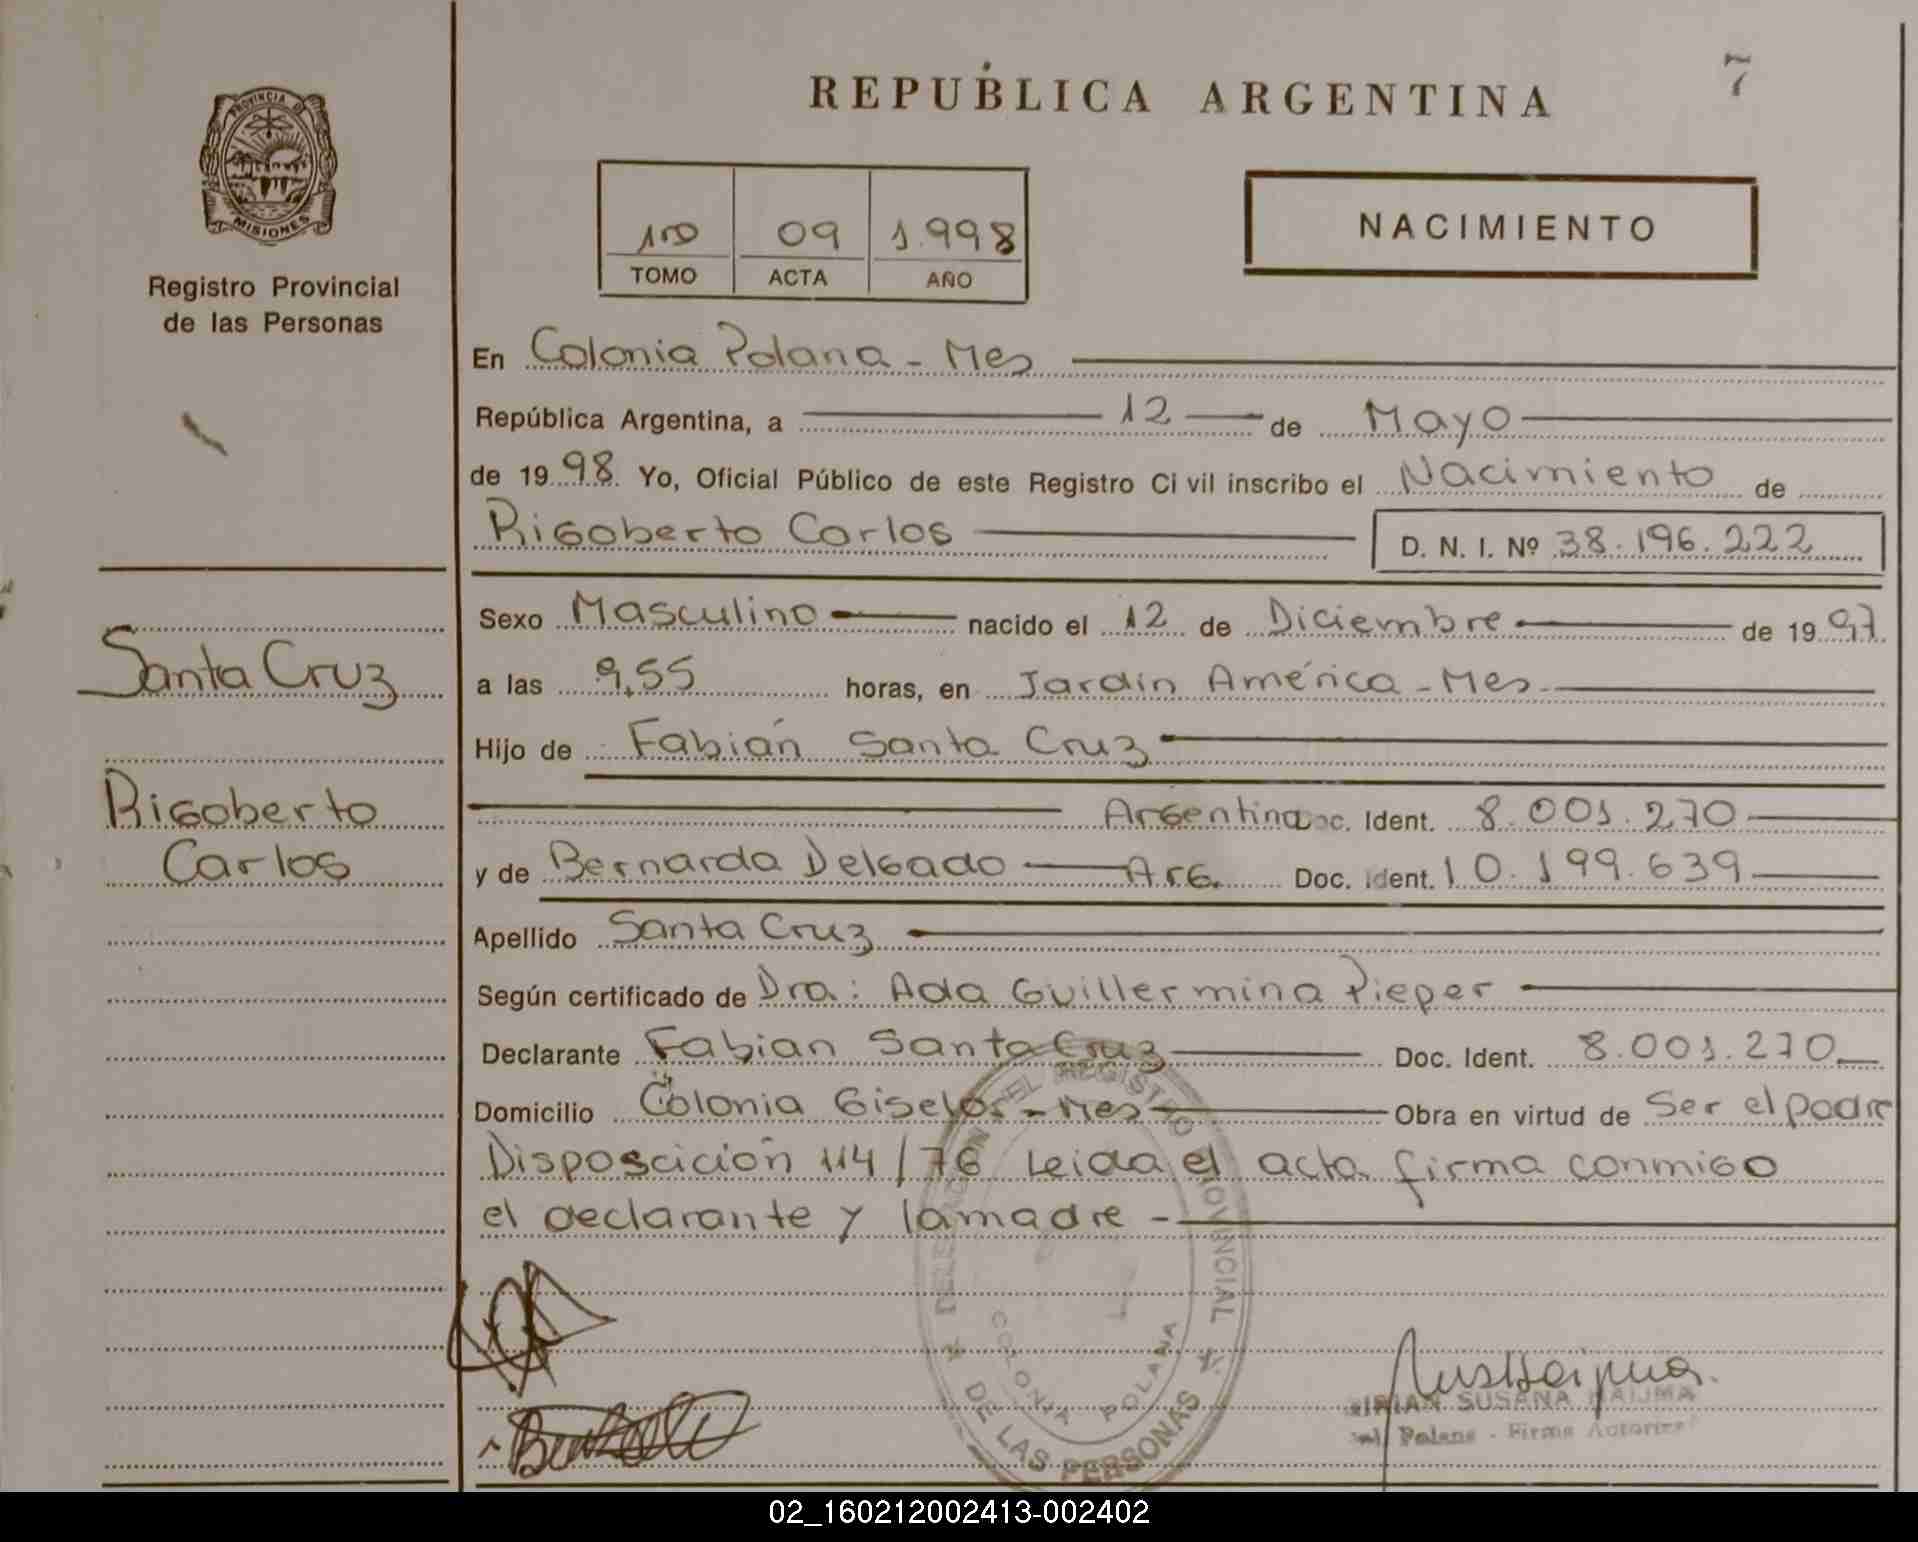 REPÚBLICA ARGENTINA
7
PROVINCIA DE
MISIONES
Registro Provincial
de las Personas
1ro 09 1.998
TOMO ACTA AÑO
NACIMIENTO
En Colonia Polana - Mes
República Argentina, a 12 de Mayo
de 1998. Yo, Oficial Público de este Registro Civil inscribo el Nacimiento de
Rigoberto Carlos D. N. I. Nº 38.196.222
Sexo Masculino nacido el 12 de Diciembre de 1997.
Santa Cruz
a las 9,55 horas, en Jardín América - Mes
Hijo de Fabián Santa Cruz
Rigoberto
Carlos
Argentina Doc. Ident. 8.001.270
y de Bernarda Delgado Arg. Doc. Ident. 10.199.639
Apellido Santa Cruz
Según certificado de Dra: Ada Guillermina Pieper
Declarante Fabian Santa Cruz Doc. Ident. 8.001.270
Domicilio Colonia Gisela - Mes Obra en virtud de Ser el padre
Disposcición 114/76 Leida el acta firma conmigo
el declarante y la madre -
DELEGACION DEL REGISTRO PROVINCIAL
DE LAS PERSONAS
COLONIA POLANA
SUSANA HAIJMA
Polana - Firma Autoriz
02_160212002413-002402